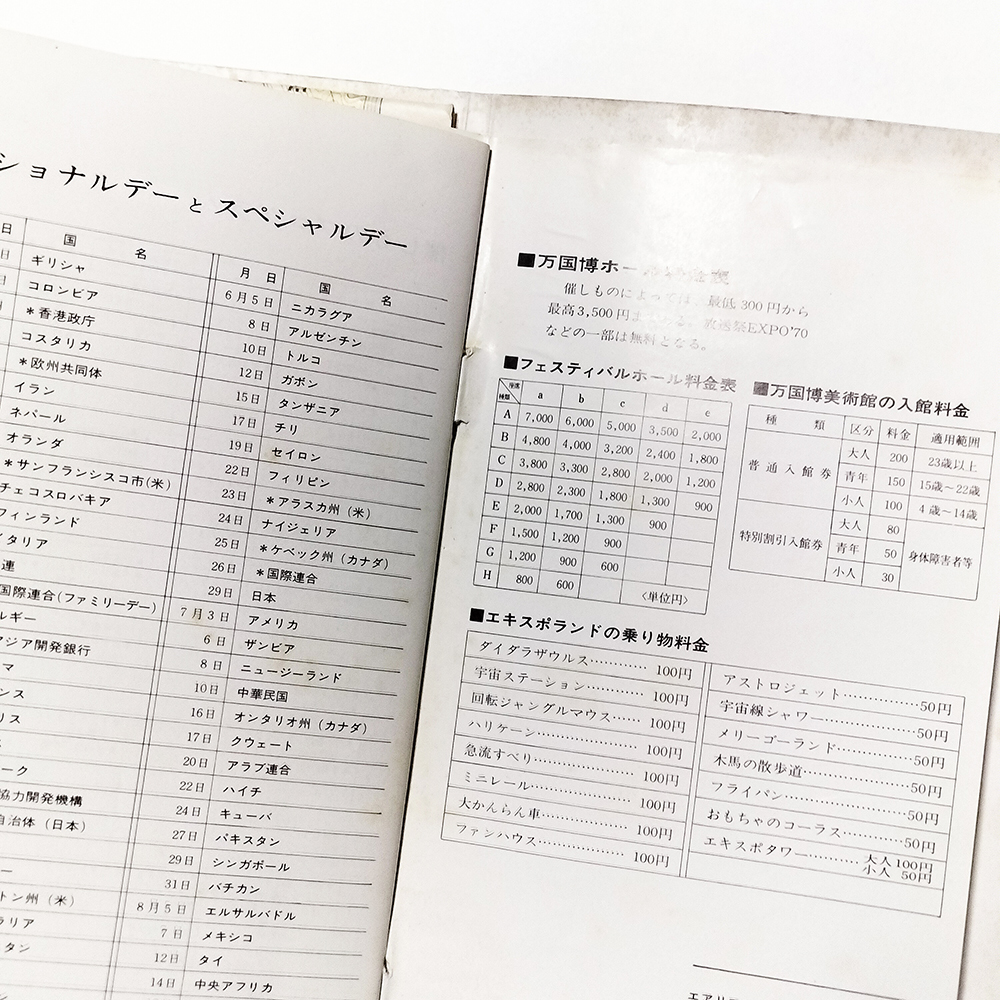 ショナルデーとスペシャルデー
日 国 名
日 ギリシャ
日 コロンビア
日 *香港政庁
コスタリカ
*欧州共同体
イラン
ネパール
オランダ
*サンフランシスコ市(米)
チェコスロバキア
フィンランド
イタリア
連
国際連合(ファミリーデー)
ルギー
アジア開発銀行
マ
ンス
リス
ーク
協力開発機構
自治体(日本)
ー
トン州(米)
ラリア
タン
月 日 国 名
6月5日 ニカラグア
8日 アルゼンチン
10日 トルコ
12日 ガボン
15日 タンザニア
17日 チリ
19日 セイロン
22日 フィリピン
23日 *アラスカ州(米)
24日 ナイジェリア
25日 *ケベック州(カナダ)
26日 *国際連合
29日 日本
7月3日 アメリカ
6日 ザンビア
8日 ニュージーランド
10日 中華民国
16日 オンタリオ州(カナダ)
17日 クウェート
20日 アラブ連合
22日 ハイチ
24日 キューバ
27日 パキスタン
29日 シンガポール
31日 バチカン
8月5日 エルサルバドル
7日 メキシコ
12日 タイ
14日 中央アフリカ
■万国博ホール料金表
催しものによっては、最低300円から
最高3,500円まである。放送祭EXPO'70
などの一部は無料となる。
■フェスティバルホール料金表
座席 種類 a b c d e
A 7,000 6,000 5,000 3,500 2,000
B 4,800 4,000 3,200 2,400 1,800
C 3,800 3,300 2,800 2,000 1,200
D 2,800 2,300 1,800 1,300 900
E 2,000 1,700 1,300 900
F 1,500 1,200 900
G 1,200 900 600
H 800 600 〈単位円〉
■万国博美術館の入館料金
種 類 区分 料金 適用範囲
普通入館券 大人 200 23歳以上
青年 150 15歳〜22歳
小人 100 4歳〜14歳
特別割引入館券 大人 80 身体障害者等
青年 50
小人 30
■エキスポランドの乗り物料金
ダイダラザウルス………… 100円
宇宙ステーション………… 100円
回転ジャングルマウス…… 100円
ハリケーン………………… 100円
急流すべり………………… 100円
ミニレール………………… 100円
大かんらん車……………… 100円
ファンハウス……………… 100円
アストロジェット…………50円
宇宙線シャワー……………50円
メリーゴーランド…………50円
木馬の散歩道………………50円
フライパン…………………50円
おもちゃのコーラス………50円
エキスポタワー………大人100円
小人 50円